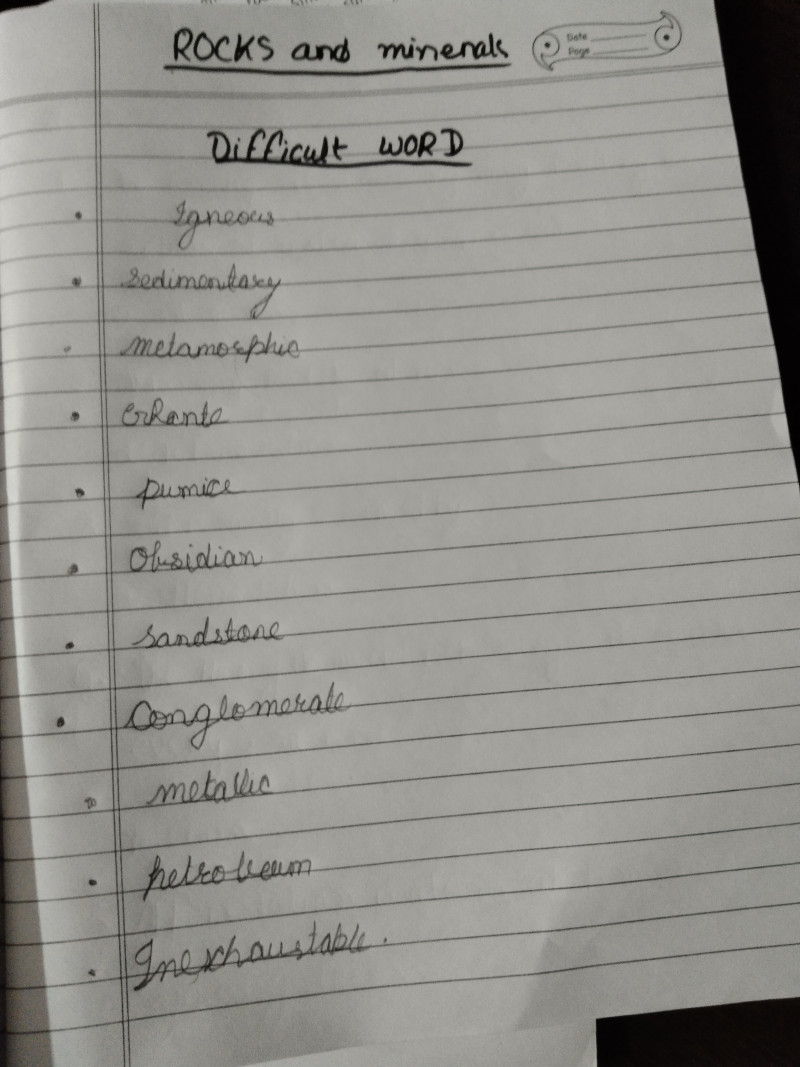 ROCKS and minerals
Date
Page
Difficult WORD
Igneous
sedimentary
metamorphic
pumice
Obsidian
sandstone
Conglomerate
metallic
petroleum
Inexhaustable.